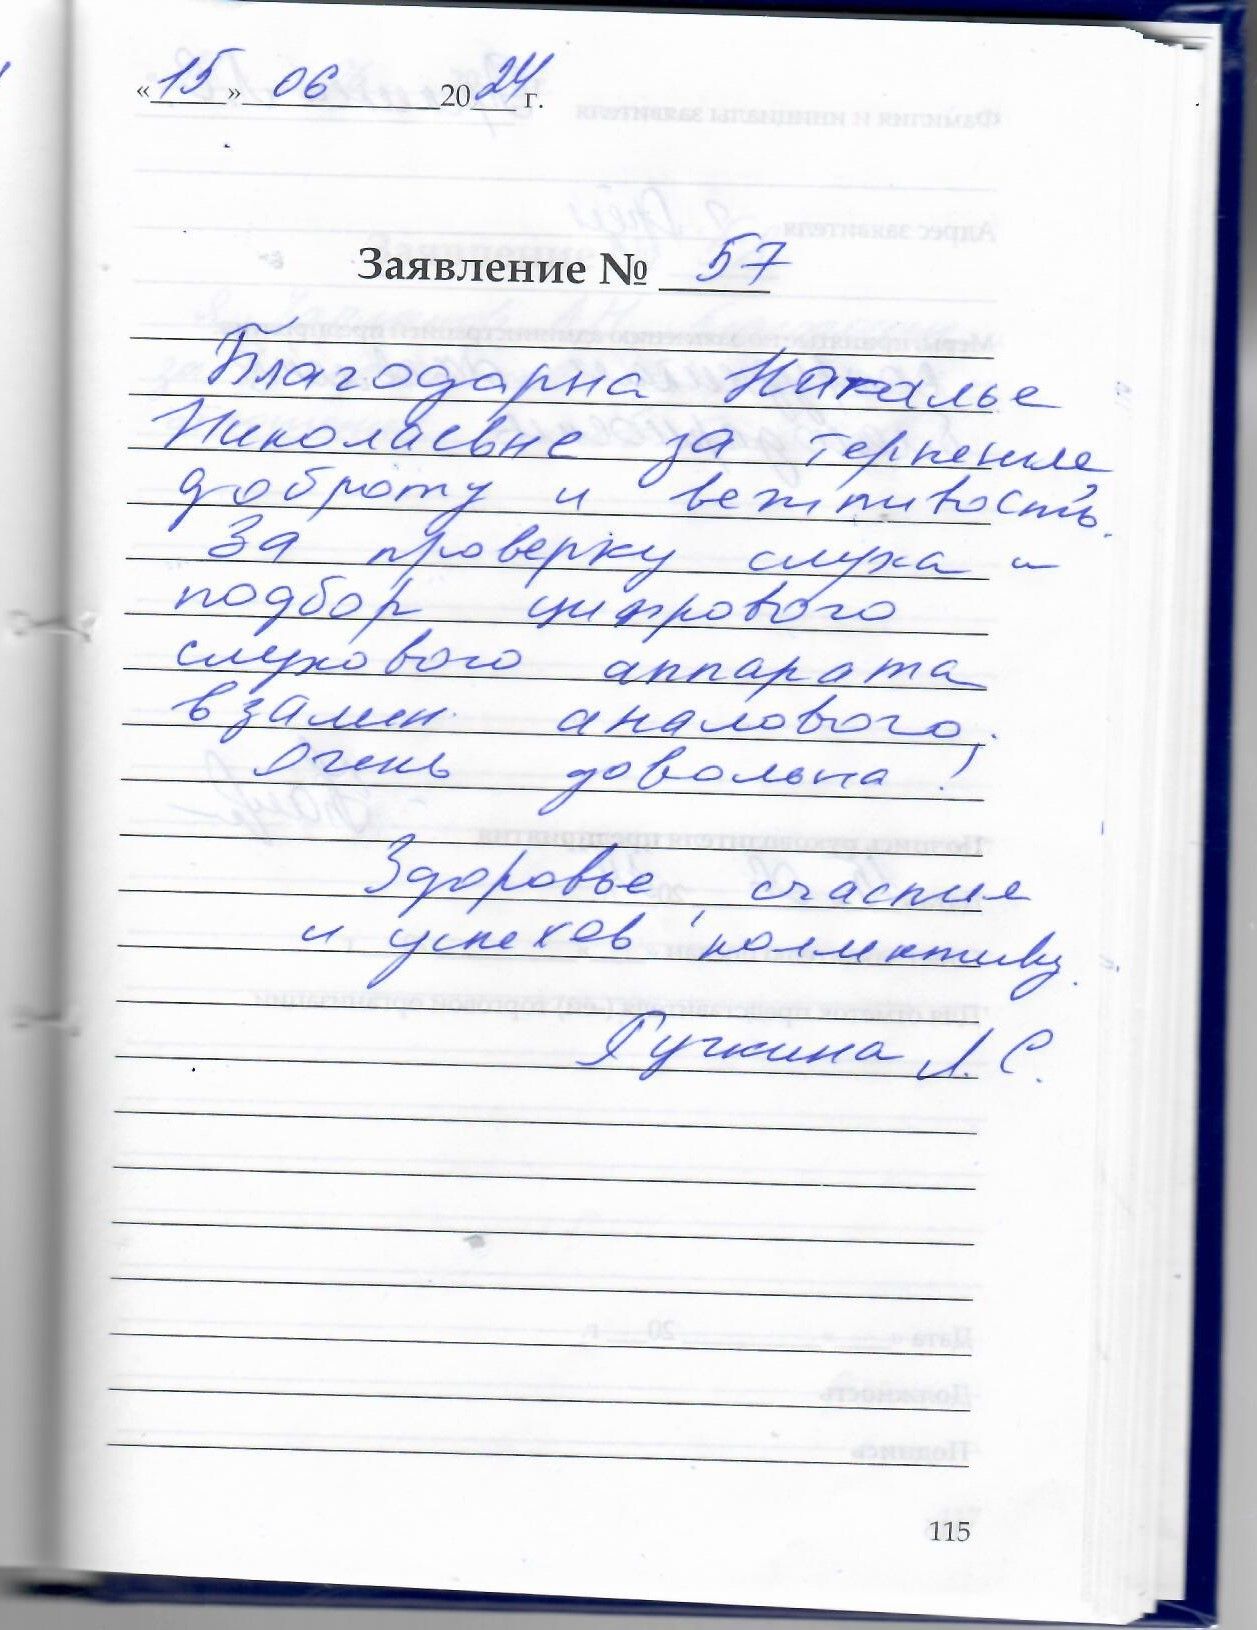 «15» 06 2024 г.
Заявление № 57
Благодарна Наталье
Николаевне за терпение,
доброту и вежливость.
За проверку слуха и
подбор цифрового
слухового аппарата
взамен аналового.
Очень довольна!
Здоровье, счастия
и успехов коллективу.
Гучкина Л. С.
115